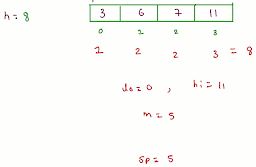 h = 8
3 6 7 11
0 1 2 3
1 2 2 3 = 8
lo = 0 , hi = 11
m = 5
sp = 5